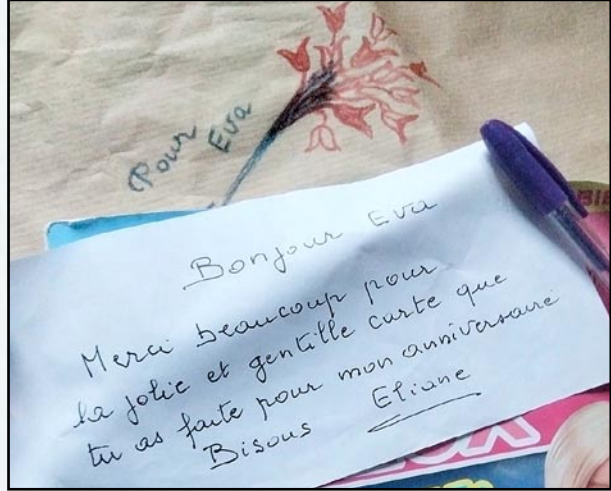 Pour
Eva
Bonjour Eva
Merci beaucoup pour
la jolie et gentille carte que
tu as faite pour mon anniversaire
Bisous Eliane